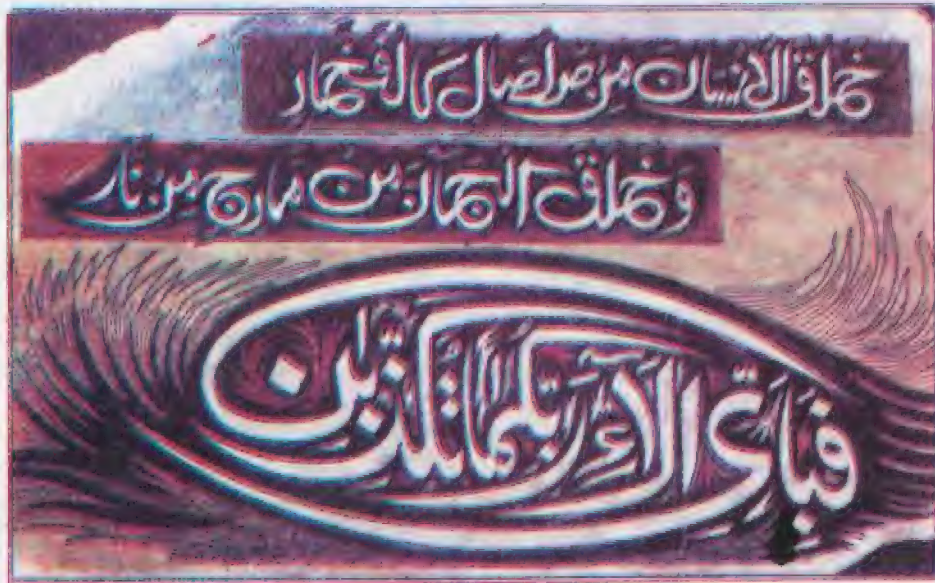 خلق الانسان من صلصال كالفخار
وخلق الجان من مارج من نار
فَبِاَىِّ اٰلَآءِ رَبِّكُمَا تُكَذِّبٰنِ